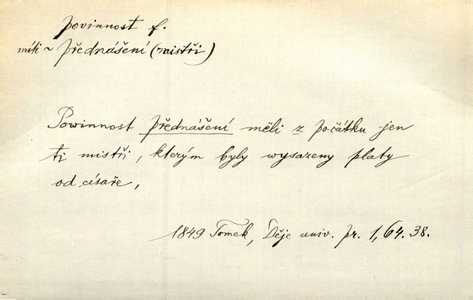 povinnost f.
míti ~ přednášení (mistři)
Powinnost přednášení měli z počátku jen
ti mistři, kterým byly wysazeny platy
od císaře,
1849 Tomek, Děje univ. pr. 1,64.38.